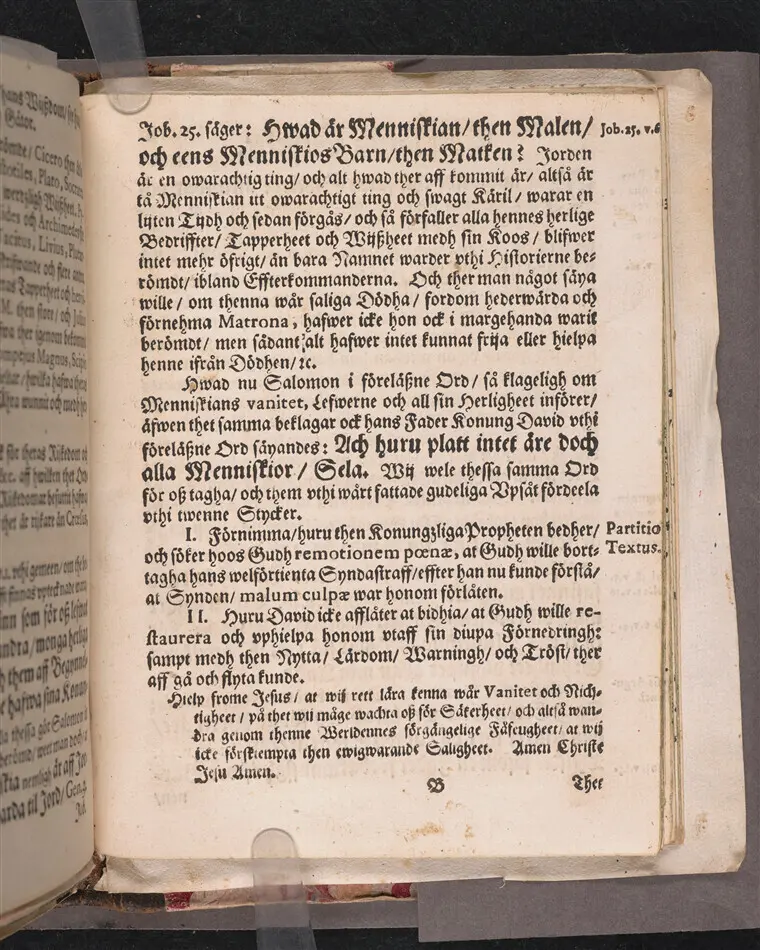 Job. 25. säger: Hwad är Menniskian/ then Malen/
och eens Menniskios Barn/ then Matken? Jorden
är en owarachtig ting/ och alt hwad ther aff kommit är/ altså är
tå Menniskian itt owarachtigt ting och swagt Käril/ warar en
lijten Tijdh och sedan förgås/ och så förfaller alla hennes herlige
Bedriffter/ Tapperheet och Wijßheet medh sin Koos/ blifwer
intet mehr öfrigt/ än bara Namnet warder vthi Historierne be-
römdt/ ibland Effterkommanderna. Och ther man något säya
wille/ om thenna wår saliga Dödha/ fordom hederwärda och
förnehma Matrona, hafwer icke hon ock i margehanda warit
berömdt/ men sådant alt hafwer intet kunnat frija eller hielpa
henne ifrån Dödhen/ ꝛc.
Hwad nu Salomon i föreläßne Ord/ så klageligh om
Menniskians vanitet, Lefwerne och all sin Herligheet införer/
äfwen thet samma beklagar ock hans Fader Konung David vthi
föreläßne Ord säyandes: Ach huru platt intet äre doch
alla Menniskior/ Sela. Wij wele thessa samma Ord
för oß tagha/ och them vthi wårt fattade gudeliga Vpsåt fördeela
vthi twenne Stycker.
I. Förnimma/ huru then Konungzliga Propheten bedher/
och söker hoos Gudh remotionem pœnæ, at Gudh wille bort-
tagha hans welförtienta Syndastraff/ effter han nu kunde förstå/
at Synden/ malum culpæ war honom förlåten.
II. Huru David icke affläter at bidhia/ at Gudh wille re-
staurera och vphielpa honom vtaff sin diupa Förnedringh:
sampt medh then Nytta/ Lärdom/ Warningh/ och Tröst/ ther
aff gå och flyta kunde.
Hielp frome Jesus/ at wij rett lära kenna wår Vanitet och Nich-
tigheet/ på thet wij måge wachta oß för Säkerheet/ och altså wan-
dra genom thenne Werldennes förgängelige Fåfeugheet/ at wij
icke förskiempta then ewigwarande Saligheet. Amen Christe
Jesu Amen.
B Thet
Job. 25. v. 6
Partitio
Textus.